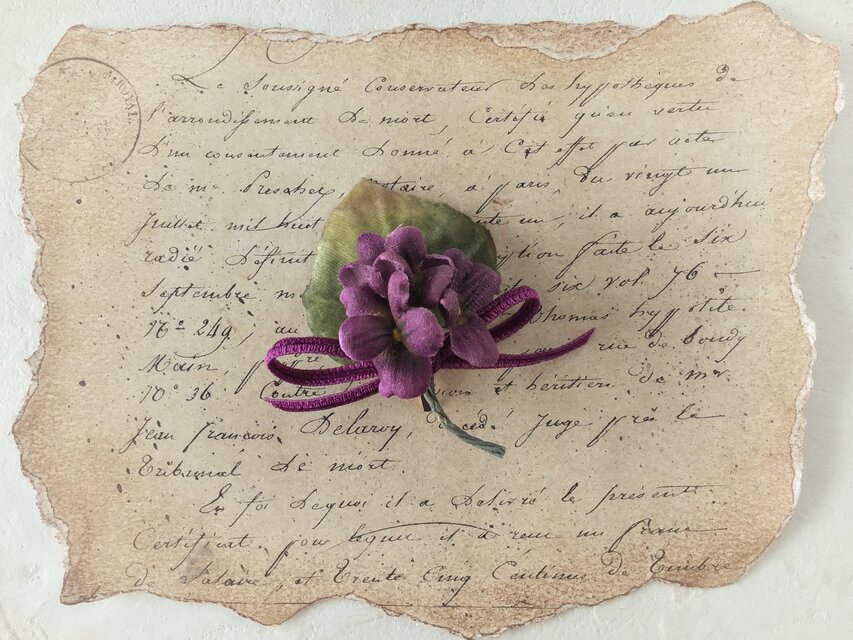 ROYAL
Le Soussigné Conservateur des hypothèques de
l'arrondissement de niort, Certifie qu'en vertu
D'un consentement donné à Cet effet par acte
De me Preschez, notaire, à paris, du vingt un
juillet mil huit te un, il a aujourd'hui
radié Définit iption faite le Six
Septembre six vol 76 —
No 249, au thomas hyppolite
Main, rue de bondy
No 36 Contre et héritiers de mr
Jean francois Delaroy, cédé juge près le
Tribunal de niort.
En foi dequoi il a Délivré le présent
Certificat pour lequel il a reçu un franc
de Salaire, et Trente Cinq Centimes de Timbre